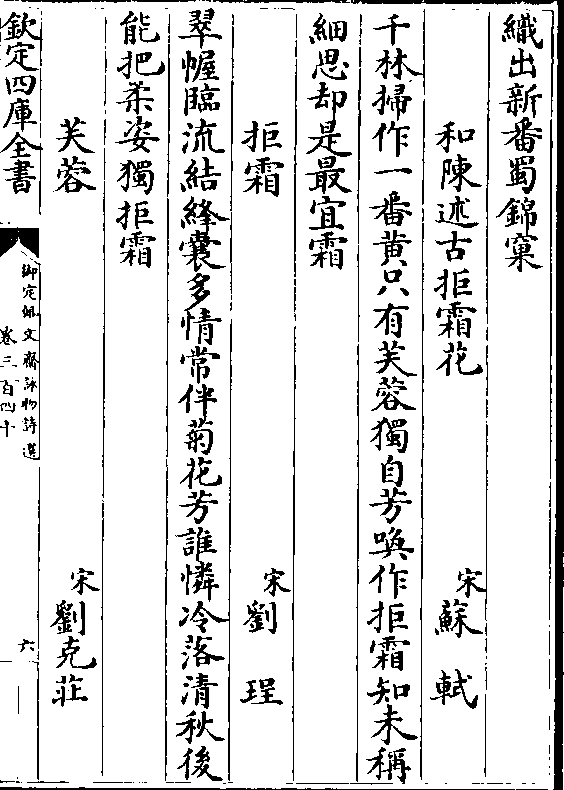 織出新番蜀錦窠
和陳述古拒霜花　宋蘇軾
千林掃作一番黃只有芙蓉獨自芳喚作拒霜知未稱
細思却是最宜霜
拒霜　宋劉珵
翠幄臨流結絳囊多情常伴菊花芳誰憐冷落清秋後
能把柔姿獨拒霜
芙蓉　宋劉克莊
欽定四庫全書
御定佩文齋詠物詩選
卷三百四十
六